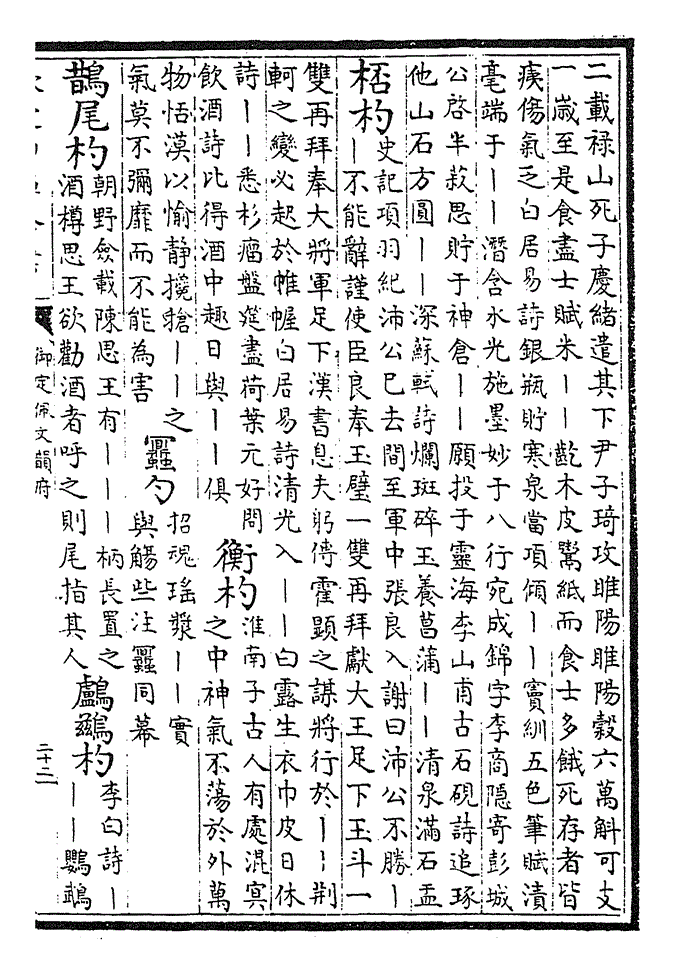 二載祿山死子慶緒遣其下尹子琦攻睢陽睢陽穀六萬斛可支
一歳至是食盡士賦米丨丨齕木皮鬻紙而食士多餓死存者皆
痍傷氣乏白居易詩銀瓶貯寒泉當項傾丨丨竇紃五色筆賦漬
毫端于丨丨潛含水光施墨妙于八行宛成錦字李商隠寄彭城
公啓半菽思貯于神倉丨丨願投于靈海李山甫古石硯詩追琢
他山石方圓丨丨深蘇軾詩爛斑碎玉養菖蒲丨丨清泉滿石盂
桮杓
史記項羽紀沛公已去間至軍中張良入謝曰沛公不勝丨
丨不能辭謹使臣良奉玉璧一雙再拜獻大王足下玉斗一
雙再拜奉大將軍足下漢書息夫躬傳霍顯之謀將行於丨丨荆
軻之變必起於帷幄白居易詩清光入丨丨白露生衣巾皮日休
詩丨丨悉杉瘤盤筵盡荷葉元好問
飲酒詩比得酒中趣日與丨丨俱
衡杓
淮南子古人有處混冥
之中神氣不蕩於外萬
物恬漠以愉静攙搶丨丨之
氣莫不彌靡而不能為害
羃勺
招魂瑤漿丨丨實
與觴些注羃同幕
鵲尾杓
朝野僉載陳思王有丨丨丨柄長置之
酒樽思王欲勸酒者呼之則尾指其人
鸕鷀杓
李白詩丨
丨丨鸚鵡
御定佩文韻府
二十二